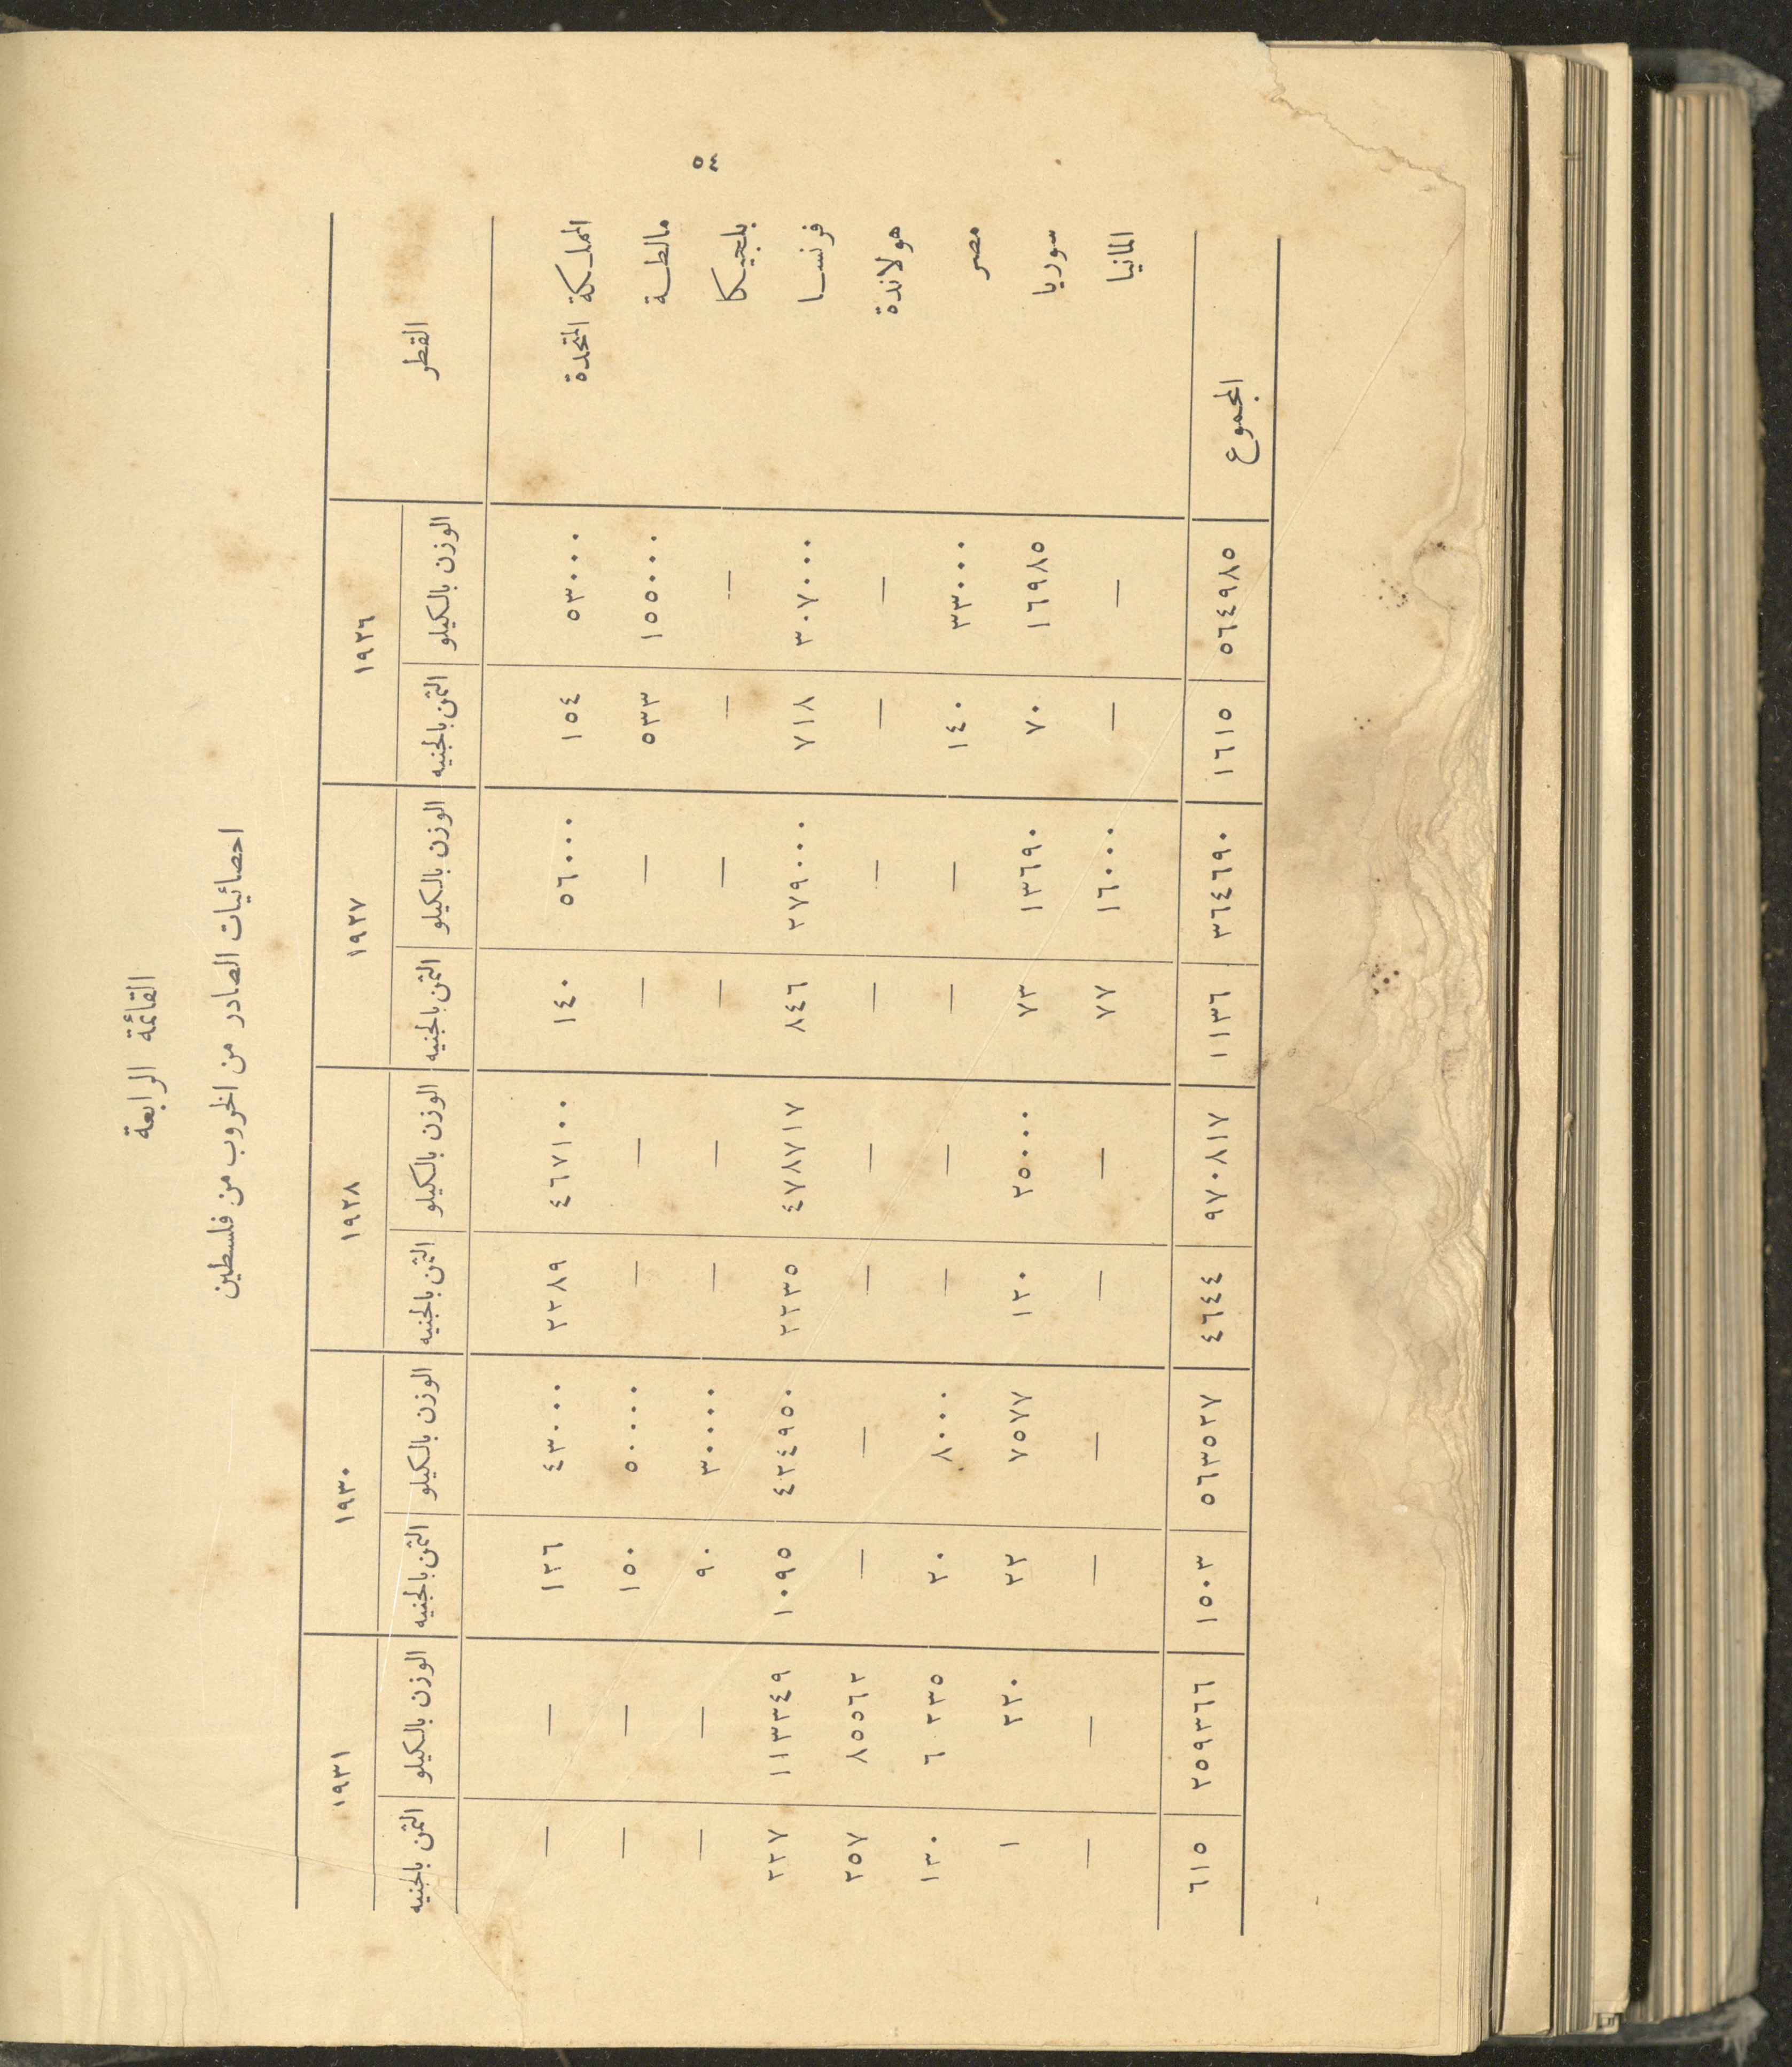 القائمة الرابعة
احصائيات الصادر من الخروب من فلسطين
القطر ١٩٢٦ ١٩٢٧ ١٩٢٨ ١٩٣٠ ١٩٣١
الوزن بالكيلو الثمن بالجنيه الوزن بالكيلو الثمن بالجنيه الوزن بالكيلو الثمن بالجنيه الوزن بالكيلو الثمن بالجنيه الوزن بالكيلو الثمن بالجنيه
المملكة المتحدة ٥٣٠٠٠ ١٥٤ ٥٦٠٠٠ ١٤٠ ٤٦٧١٠٠ ٢٢٨٩ ٤٣٠٠٠ ١٢٦ — —
مالطة ١٥٥٠٠٠ ٥٣٣ — — — — ٥٠٠٠٠ ١٥٠ — —
بلجيكا — — — — — — ٣٠٠٠٠ ٩٠ — —
فرنسا ٣٠٧٠٠٠ ٧١٨ ٢٧٩٠٠٠ ٨٤٦ ٤٧٨٧١٧ ٢٢٣٥ ٤٢٤٩٥٠ ١٠٩٥ ١١٣٣٤٩ ٢٢٧
هولاندة — — — — — — — — ٨٥٥٦٢ ٢٥٧
مصر ٣٣٠٠٠ ١٤٠ — — — — ٨٠٠٠ ٢٠ ٦ ٢٣٥ ١٣٠
سوريا ١٦٩٨٥ ٧٠ ١٣٦٩٠ ٧٣ ٢٥٠٠٠ ١٢٠ ٧٥٧٧ ٢٢ ٢٢٠ ١
المانيا — — ١٦٠٠٠ ٧٧ — — — — — —
المجموع ٥٦٤٩٨٥ ١٦١٥ ٣٦٤٦٩٠ ١١٣٦ ٩٧٠٨١٧ ٤٦٤٤ ٥٦٣٥٢٧ ١٥٠٣ ٢٥٩٣٦٦ ٦١٥